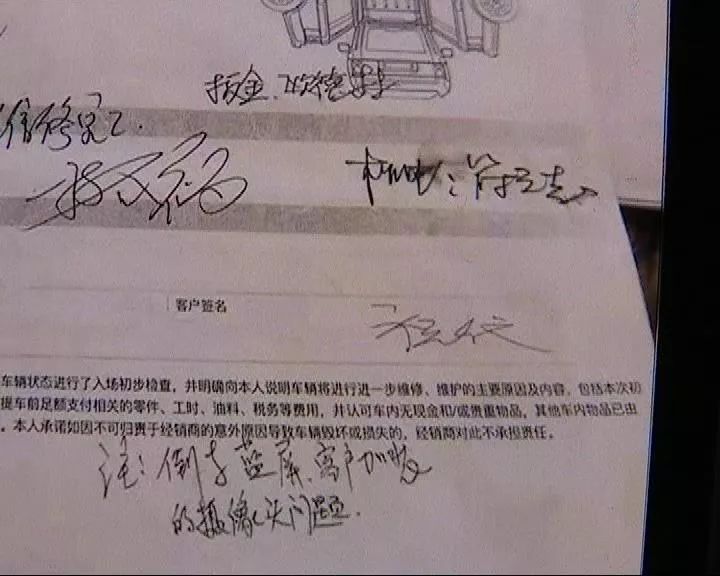 钣金
机电：
客户签名
车辆状态进行了入场初步检查，并明确向本人说明车辆将进行进一步维修、维护的主要原因及内容，包括本次初
提车前足额支付相关的零件、工时、油料、税务等费用，并认可车内无现金和/或贵重物品，其他车内物品已由
。本人承诺如因不可归责于经销商的意外原因导致车辆毁坏或损失的，经销商对此不承担责任。
注：倒车蓝屏、客户加装
的摄像头问题.